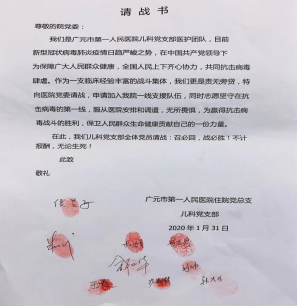 请战书
尊敬的院党委：
我们是广元市第一人民医院儿科党支部医护团队，目前
新型冠状病毒肺炎疫情日趋严峻之势，在中国共产党领导下
为保障广大人民群众健康，全国人民上下齐心协力，共同抗击病毒
肆虐。作为一支临床经验丰富的战斗集体，我们更是责无旁贷，特
向医院党委请战，申请加入我院一线支援队伍，同时志愿坚守在抗
击病毒的第一线，服从医院安排和调遣，无所畏惧，为赢得抗击病
毒战斗的胜利，保卫人民群众生命健康贡献自己的一份力量。
在此，我们儿科党支部全体党员请战：召必回，战必胜！不计
报酬，无论生死！
此致
敬礼
广元市第一人民医院住院党总支
儿科党支部
2020年1月31日